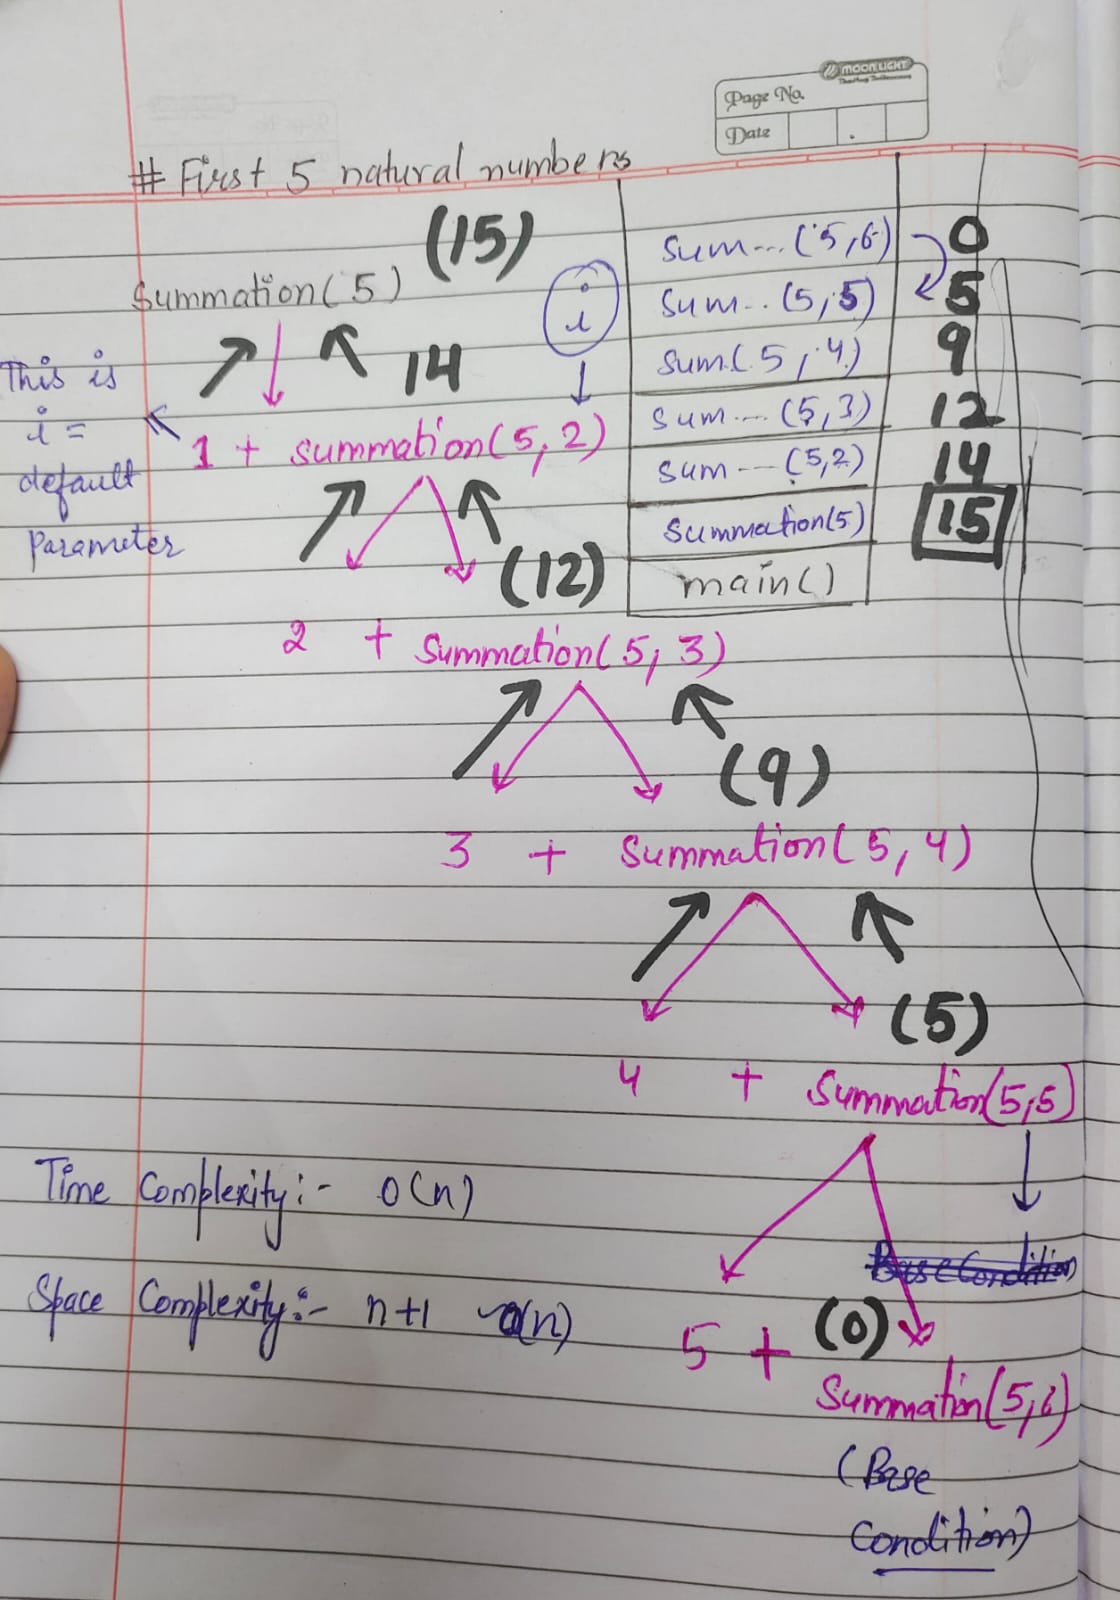 MOONLIGHT
Page No.
Date
# First 5 natural numbers
(15)
Summation(5)
14
i
This is
i =
default
Parameter
1 + summation(5,2)
(12)
2 + Summation(5,3)
(9)
3 + Summation(5,4)
(5)
4 + Summation(5,5)
Base Condition
5 + (0)
Summation(5,6)
(Base
Condition)
sum...(5,6) 0
sum..(5,5) 5
sum.(5,4) 9
sum...(5,3) 12
sum---(5,2) 14
summation(5) 15
main()
Time Complexity:- O(n)
Space Complexity:- n+1 ~O(n)